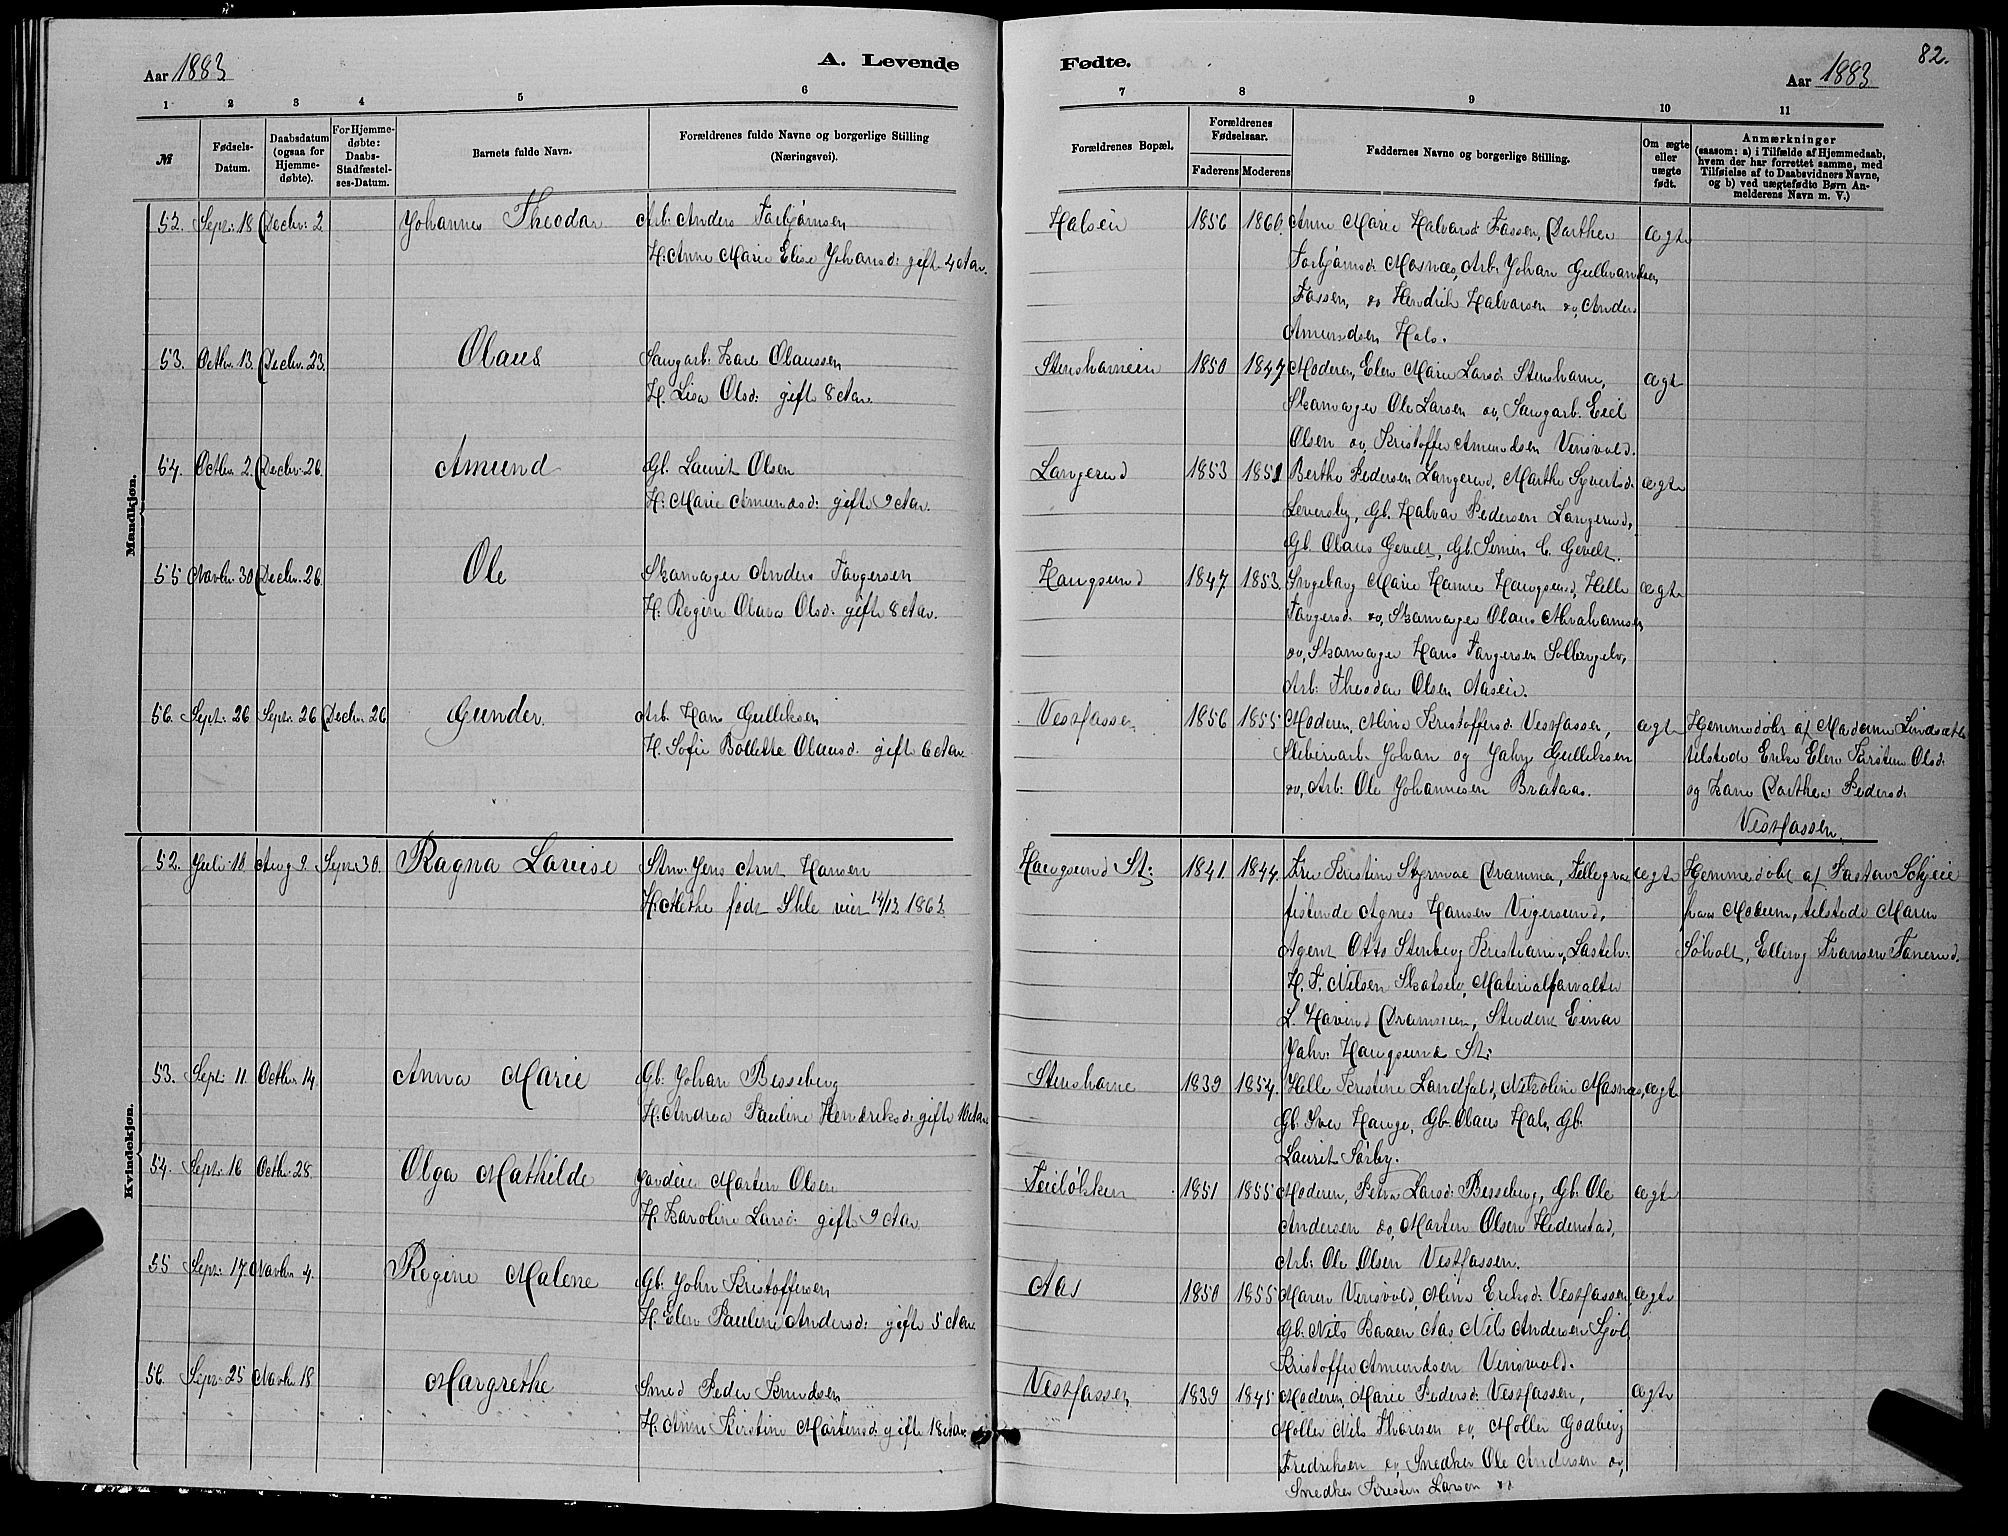 82.
Aar 1883
A. Levende
Fødte.
Aar 1883
1 2 3 4 5 6
7 8 9 10 11
№
Fødsels-Datum.
Daabsdatum (ogsaa for Hjemme-døbte).
For Hjemme-døbte: Daabs-Stadfæstel-ses-Datum.
Barnets fulde Navn.
Forældrenes fulde Navne og borgerlige Stilling (Næringsvei).
Forældrenes Bopæl.
Forældrenes Fødselsaar.
Faderens Moderens
Faddernes Navne og borgerlige Stilling.
Om ægte eller uægte født.
Anmærkninger (saasom: a) i Tilfælde af Hjemmedaab, hvem der har forrettet samme, med Tilføielse af to Daabsvidners Navne, og b) ved uægtefødte Børn An-melderens Navn m. V.)
Mandkjøn.
52. Sept: 18 Decbr: 2 Johannes Theodor Arb: Anders Torbjørnsen
H: Anne Marie Elise Johansd: gift 4 Aar.
Halseie 1856 1860. Anne Marie Halvorsd: Fossen, Dorthea ægte
Torbjørnsd: Mosnæs, Arb: Johan Gulbrandsen
Fossen, Hendrik Halvorsen Anders
Amundsen Hals.
53. Octbr. 13. Decbr. 23. Olaus Saugarb: Lars Olaussen
H. Lisa Olsd: gift 8 Aar.
Stenshorneie 1850 1847 Moderen, Elen Marie Larsd: Stenshorne, ægte
Skomager Ole Larsen Saugarb: Emil
Olsen Kristoffer Amundsen Vinsvold.
54. Octbr. 2. Decbr. 26. Amund Gb. Laurits Olsen
H: Marie Amundsd: gift 9 Aar.
Langerud 1853 1851 Berthe Pedersen Langerud, Marthe Syvertsd: ægte
Leversby, Gb. Halvor Pedersen Langerud,
Gb. Olaus Gevelt, Gb. Simen C. Gevelt.
55 Novbr. 30 Decbr. 26. Ole Skomager Anders Torgersen
H: Regine Olava Olsd: gift 8 Aar.
Haugsund 1847 1853. Ingeborg Marie Hanne Haugsund, Helle ægte
Torgersd: Skomager Olaus Abrahamsen
Skomager Hans Torgersen Solbergelv,
Arb: Theodor Olsen Aaseie.
56. Sept: 26 Sept: 26 Decbr 26 Gunder. Arb. Hans Gulliksen
H. Sofie Bollette Olausd: gift 6 Aar.
Vestfossen 1856 1855 Moderen, Mina Kristoffersd: Vestfossen, ægte
Sliberiarb: Johan og Jahn Gulliksen
Arb: Ole Johannesen Brataas.
Hjemmedøbt af Madame Lindsæth
tilstede Enke Elen Kirstine Olsd:
og Karen Dorthea Pedersd:
Vestfossen.
Kvindekjøn.
52. Juli 18 Aug 9. Sept: 30. Ragna Lovise Stm: Jens Arnt Hansen
H: Methe født Skle viet 14/12 1863
Haugsund St: 1841 1844. Fru Kristine Styrmoe Drammen, Telegraf- ægte
istinde Agnes Hansen Vigersund,
Agent Otto Stenberg Kristiania, Lastehv:
H. T. Nilsen Skotselv, Materialforvalter
L. Havind Drammen, Student Einar
Jahr: Haugsund St:
Hjemmedøbt af Pastor Schjeie
paa Modum, tilstede Maren
Solvolt, Elling Fransen Fonerud.
53. Sept: 11. Octbr 14. Anna Marie Gb: Johan Besseberg
H: Andrea Pauline Hendriksd: gift 10 Aar.
Stenshorne 1839 1854. Helle Kristine Landfald, Nikoline Mosnæs, ægte
Gb: Iver Hauge, Gb. Olaus Hals, Gb:
Laurits Sørby.
54. Sept. 16 Octbr. 28. Olga Mathilde Jordeier Morten Olsen
H. Karoline Larsd: gift 9 Aar
Teieløkken 1851 1855 Moderen, Petra Larsd: Besseberg, Gb: Ole ægte
Andersen Morten Olsen Hedenstad,
Arb: Ole Olsen Vestfossen.
55 Sept: 17. Novbr 4. Regine Malene Gb: John Kristoffersen
H. Elen Pauline Andersd: gift 5 Aar.
Aas 1850 1855 Maren Vinsvold, Mina Eriksd: Vestfossen, ægte
Gb: Nils Baaen Aas, Nils Andersen Sjøl
Kristoffer Amundsen Vinsvold.
56. Sept: 25 Novbr 18 Margrethe Smed Peder Knudsen
H. Anne Kirstine Mortensd: gift 18 Aar.
Vestfossen 1839 1845 Moderen, Marie Pedersd: Vestfossen, ægte
Møller Nils Thoresen Møller Godberg
Fredriksen Snedker Ole Andersen
Snedker Kristen Larsen